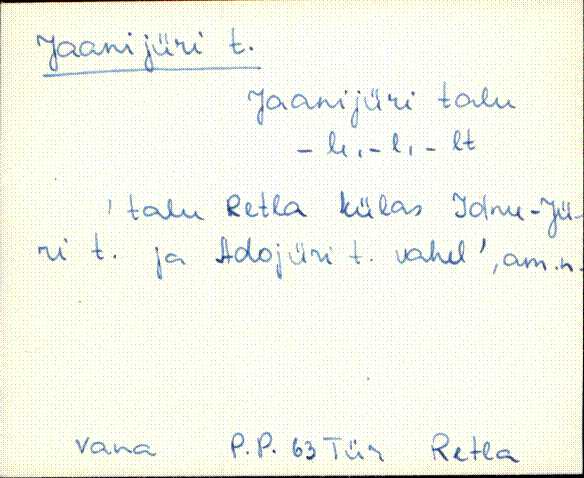 Jaanijüri t.
Jaanijüri talu
- le, - l, - lt
'talu Retla külas Idnu-Jü-
ri t. ja Adojüri t. vahel', am.n.
vana P.P. 63 Tür Retla